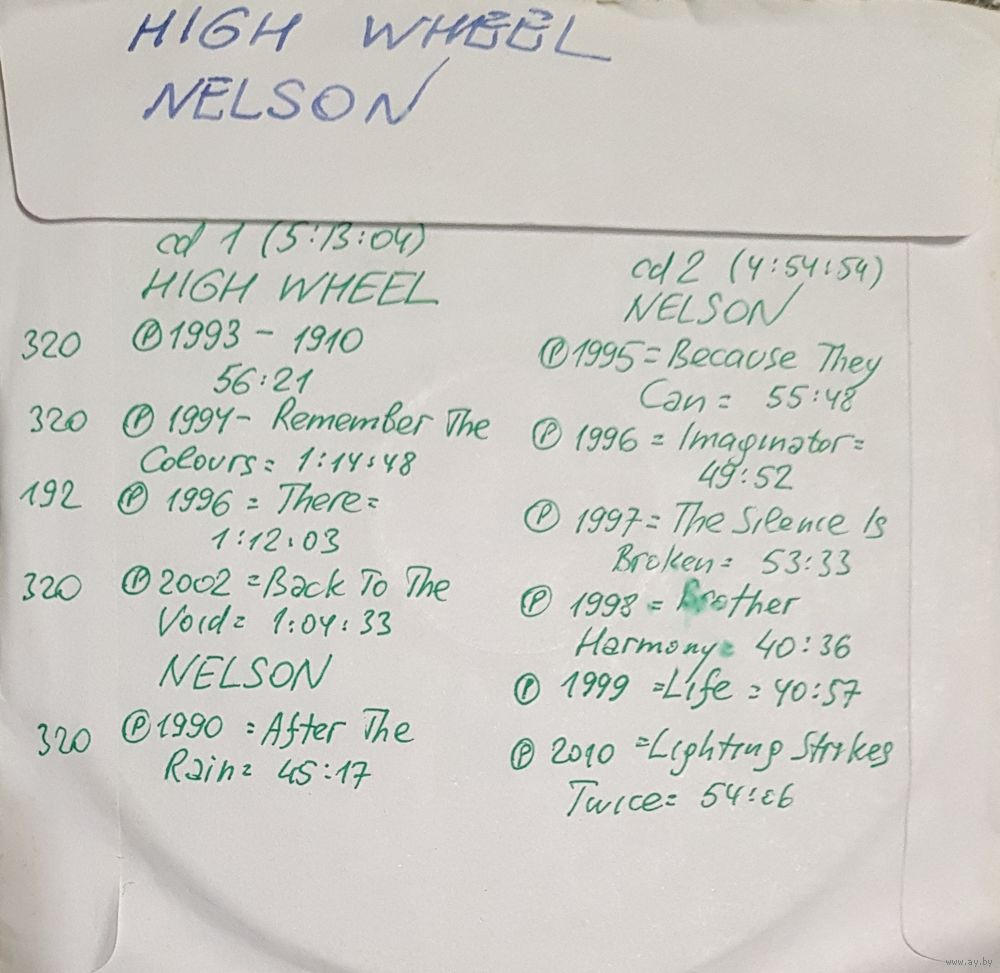 HIGH WHEEL
NELSON
cd 1 (5:13:04)
HIGH WHEEL
320 Ⓟ 1993 - 1910
56:21
320 Ⓟ 1994 - Remember The
Colours = 1:14:48
192 Ⓟ 1996 = There =
1:12:03
320 Ⓟ 2002 = Back To The
Void = 1:04:33
NELSON
320 Ⓟ 1990 = After The
Rain = 45:17
cd 2 (4:54:54)
NELSON
Ⓟ 1995 = Because They
Can = 55:48
Ⓟ 1996 = Imaginator =
49:52
Ⓟ 1997 = The Silence Is
Broken = 53:33
Ⓟ 1998 = Brother
Harmony = 40:36
Ⓟ 1999 = Life = 40:57
Ⓟ 2010 = Lighting Strikes
Twice =
www.ay.by